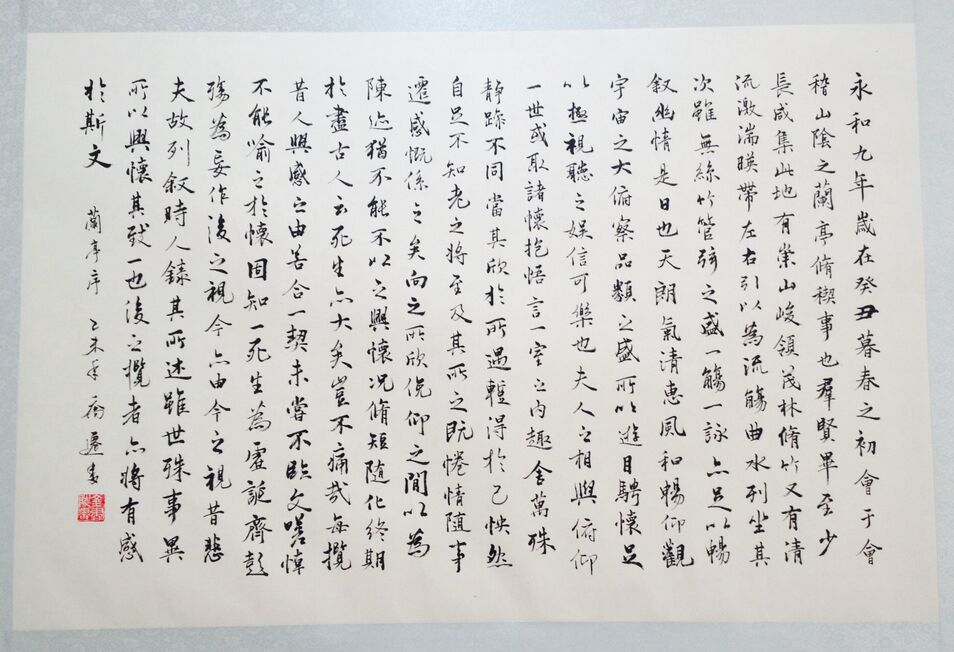 永和九年歲在癸丑暮春之初會于會
稽山陰之蘭亭脩稧事也群賢畢至少
長咸集此地有崇山峻領茂林脩竹又有清
流激湍暎帶左右引以為流觴曲水列坐其
次雖無絲竹管弦之盛一觴一詠亦足以暢
叙幽情是日也天朗氣清惠風和暢仰觀
宇宙之大俯察品類之盛所以遊目騁懷足
以極視聽之娛信可樂也夫人之相與俯仰
一世或取諸懷抱悟言一室之內趣舍萬殊
靜躁不同當其欣於所遇蹔得於己怏然
自足不知老之將至及其所之既惓情隨事
遷感慨係之矣向之所欣俛仰之間以為
陳迹猶不能不以之興懷況脩短隨化終期
於盡古人云死生亦大矣豈不痛哉每攬
昔人興感之由若合一契未嘗不臨文嗟悼
不能喻之於懷固知一死生為虛誕齊彭
殤為妄作後之視今亦由今之視昔悲
夫故列叙時人錄其所述雖世殊事異
所以興懷其致一也後之攬者亦將有感
於斯文 蘭亭序 乙未年 遷書